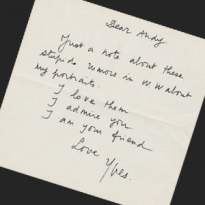 Dear Andy
Just a note about these
stupids rumors in W.W about
my portraits.
I love them
I admire you
I am your friend
Love Yves.